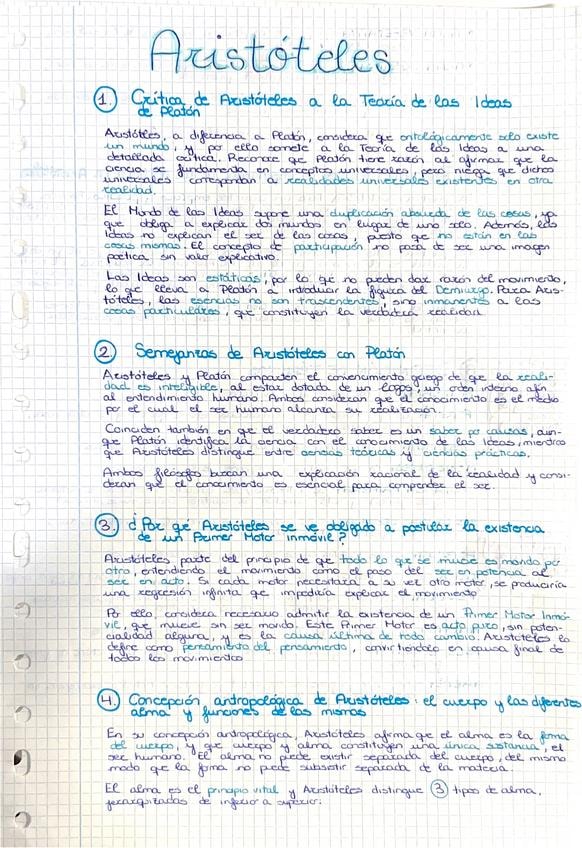 Aristóteles
1. Crítica de Aristóteles a la Teoría de las Ideas
de Platón
Aristóteles, a diferencia a Platón, considera que ontológicamente solo existe
un mundo, y por ello somete a la Teoría de las Ideas a una
detallada crítica. Reconoce que Platón tiene razón al afirmar que la
ciencia se fundamenta en conceptos universales, pero niega que dichos
universales correspondan a realidades universales existentes en otra
realidad.
El Mundo de las Ideas supone una duplicación absurda de las cosas, ya
que obliga a explicar dos mundos en lugar de uno solo. Además, las
Ideas no explican el ser de las cosas, puesto que no están en las
cosas mismas. El concepto de participación no pasa de ser una imagen
poética sin valor explicativo.
Las Ideas son estáticas, por lo que no pueden dar razón del movimiento,
lo que lleva a Platón a introducir la figura del Demiurgo. Para Aris-
tóteles, las esencias no son trascendentes, sino inmanentes a las
cosas particulares, que constituyen la verdadera realidad.
2. Semejanzas de Aristóteles con Platón
Aristóteles y Platón comparten el convencimiento griego de que la reali-
dad es inteligible, al estar dotada de un logos, un orden interno afín
al entendimiento humano. Ambos consideran que el conocimiento es el medio
por el cual el ser humano alcanza su realización.
Coinciden también en que el verdadero saber es un saber por causas, aun-
que Platón identifica la ciencia con el conocimiento de las Ideas, mientras
que Aristóteles distingue entre ciencias teóricas y ciencias prácticas.
Ambos filósofos buscan una explicación racional de la realidad y consi-
deran que el conocimiento es esencial para comprender el ser.
3. ¿Por qué Aristóteles se ve obligado a postular la existencia
de un Primer Motor inmóvil?
Aristóteles parte del principio de que todo lo que se mueve es movido por
otro, entendiendo el movimiento como el paso del ser en potencia al
ser en acto. Si cada motor necesitara a su vez otro motor, se produciría
una regresión infinita que impediría explicar el movimiento
Por ello, considera necesario admitir la existencia de un Primer Motor Inmó-
vil, que mueve sin ser movido. Este Primer Motor es acto puro, sin poten-
cialidad alguna, y es la causa última de todo cambio. Aristóteles lo
define como pensamiento del pensamiento, convirtiéndolo en causa final de
todos los movimientos
4. Concepción antropológica de Aristóteles: el cuerpo y las diferentes
alma y funciones de las mismas
En su concepción antropológica, Aristóteles afirma que el alma es la forma
del cuerpo, y que cuerpo y alma constituyen una única sustancia, el
ser humano. El alma no puede existir separada del cuerpo, del mismo
modo que la forma no puede subsistir separada de la materia.
El alma es el principio vital y Aristóteles distingue 3 tipos de alma,
jerarquizadas de inferior a superior: